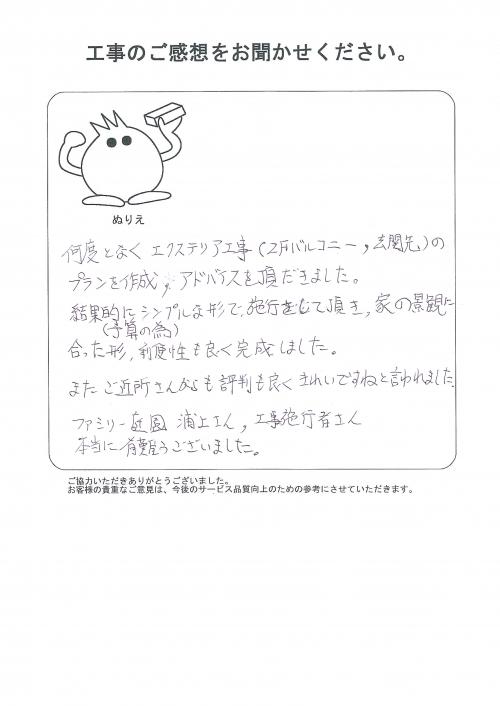 工事のご感想をお聞かせください。
ぬりえ
何度となく エクステリア工事(2Fバルコニー,玄関先)の
プランを作成, アドバイスを頂だきました。
結果的にシンプルな形で、施行をして頂き, 家の景観に
(予算の為)
合った形, 利便性も良く完成しました。
またご近所さんからも評判も良くきれいですねと言われました。
ファミリー庭園 浦上さん, 工事施行者さん
本当に有難うございました。
ご協力いただきありがとうございました。
お客様の貴重なご意見は、今後のサービス品質向上のための参考にさせていただきます。